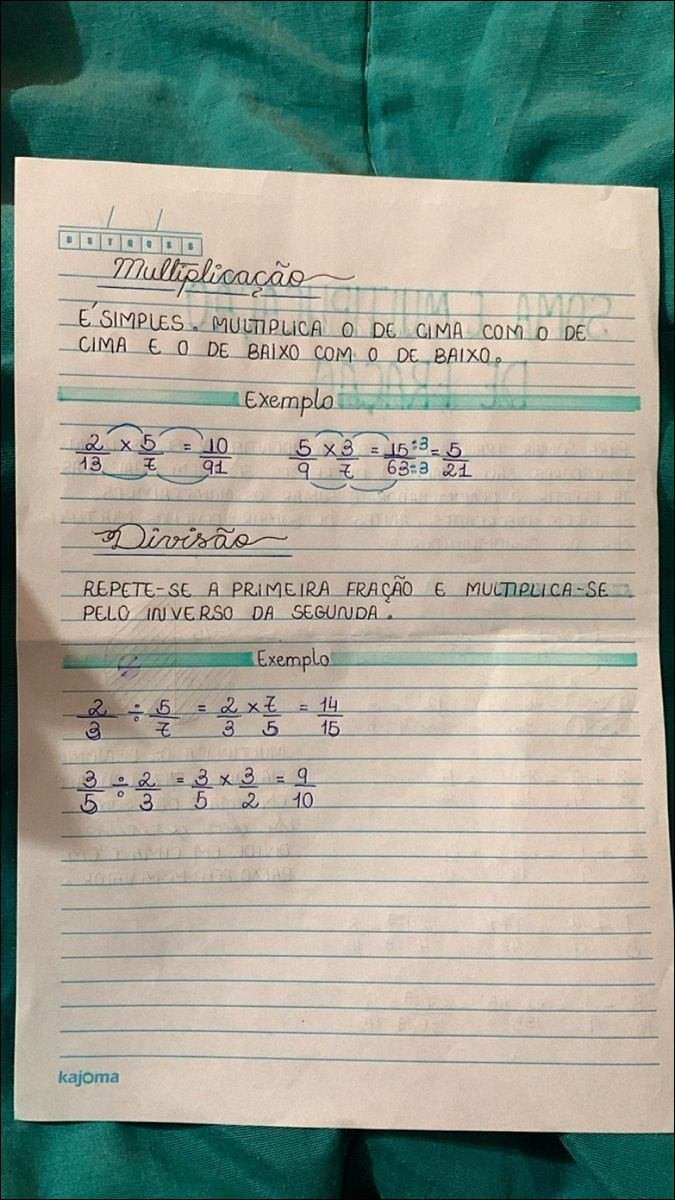 D S T Q Q S S
Multiplicação
É SIMPLES. MULTIPLICA O DE CIMA COM O DE
CIMA E O DE BAIXO COM O DE BAIXO.
Exemplo
2/13 × 5/7 = 10/91 5/9 × 3/7 = 15÷3/63÷3 = 5/21
Divisão
REPETE-SE A PRIMEIRA FRAÇÃO E MULTIPLICA-SE
PELO INVERSO DA SEGUNDA.
Exemplo
2/3 ÷ 5/7 = 2/3 × 7/5 = 14/15
3/5 ÷ 2/3 = 3/5 × 3/2 = 9/10
kajoma